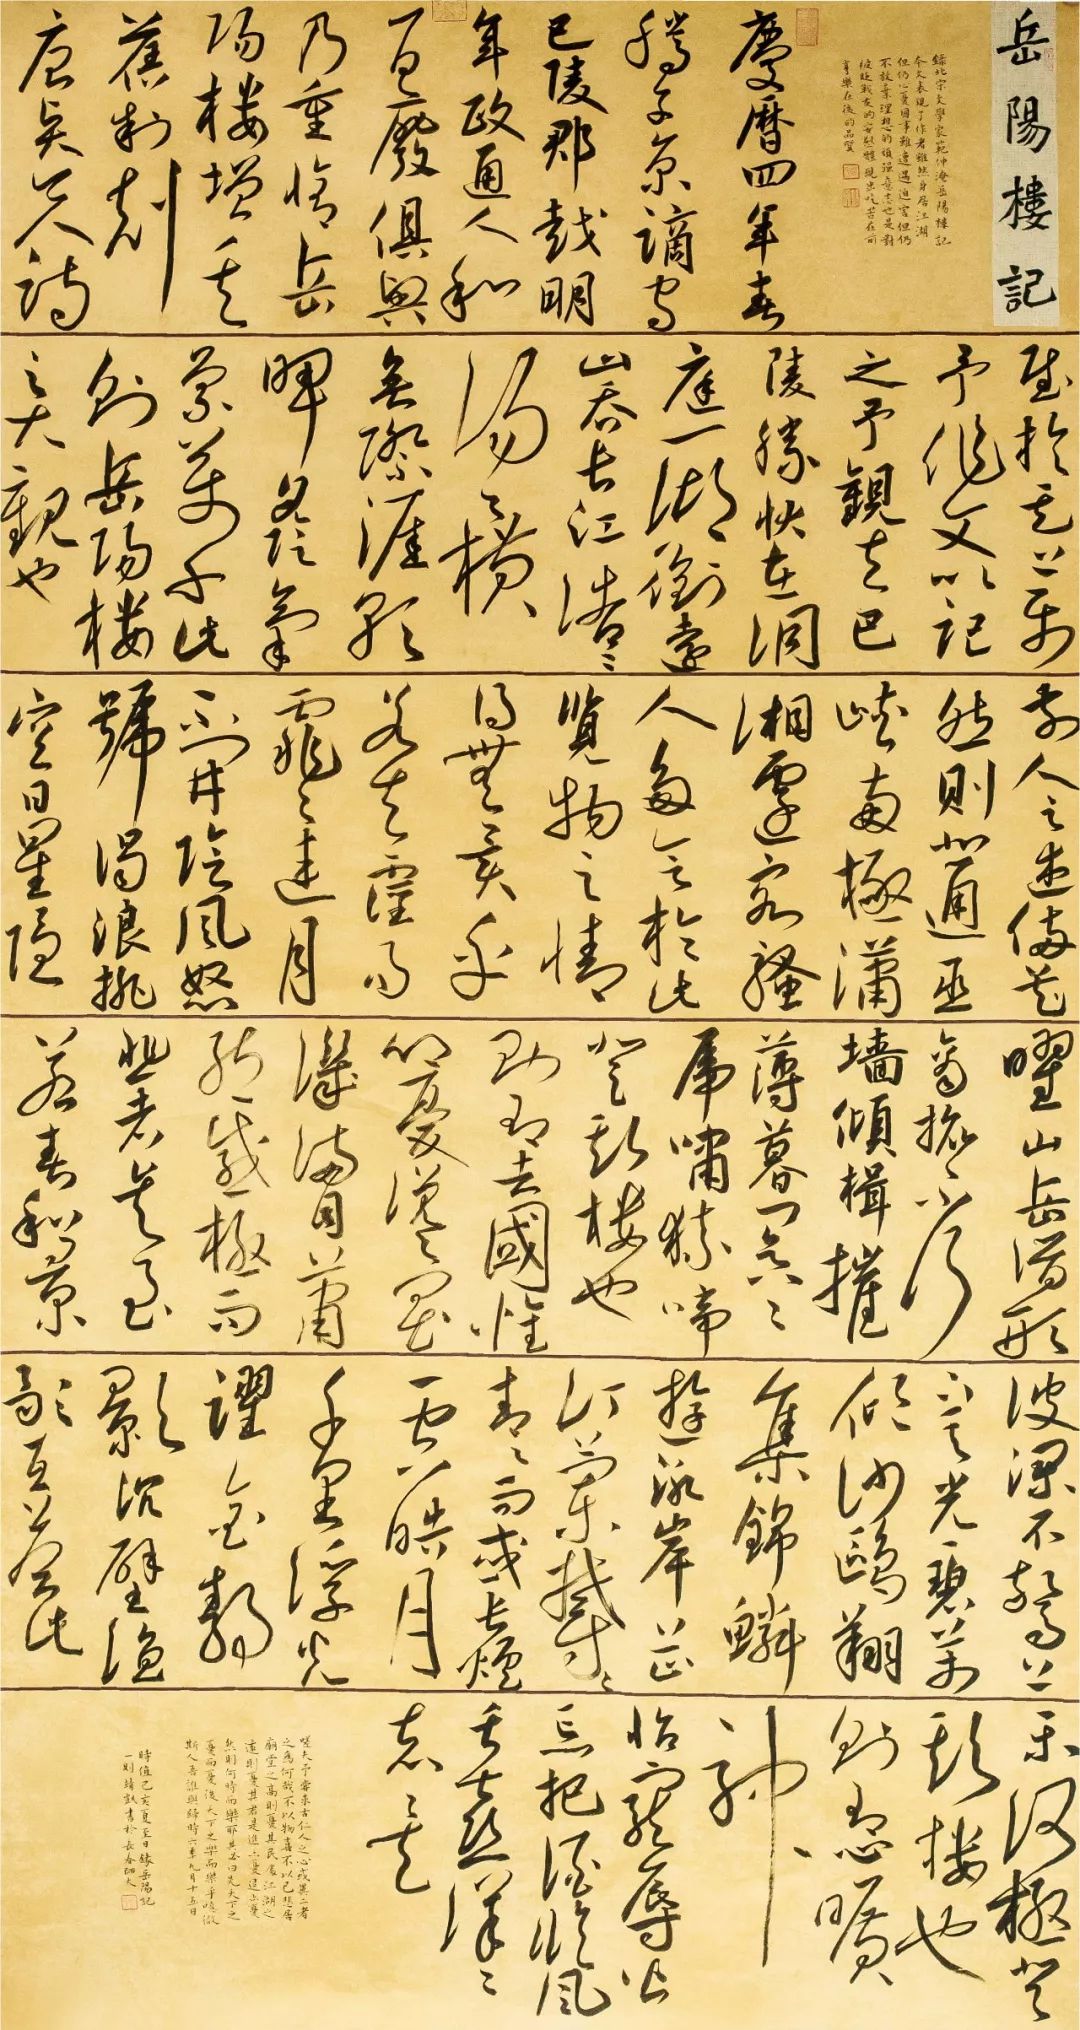 岳陽樓記
錄北宋文學家範仲淹岳陽樓記
本文表現了作者雖然身居江湖
但仍心憂國事雖遭遇迫害但仍
不放棄理想的頑強意志也是對
被貶戰友的安慰體現出吃苦在前
享樂在後的品質
慶曆四年春
滕子京謫守
巴陵郡越明
年政通人和
百廢俱興
乃重脩岳
陽樓增其
舊制刻
唐賢今人詩
賦於其上屬
予作文以記
之予觀夫巴
陵勝狀在洞
庭一湖銜遠
山吞長江浩浩
湯湯橫
無際涯朝
暉夕陰氣
象萬千此
則岳陽樓
之大觀也
前人之述備矣
然則北通巫
峽南極瀟
湘遷客騷
人多會於此
覽物之情
得無異乎
若夫霪雨
霏霏連月
不開陰風怒
號濁浪排
空日星隱
曜山岳潛形
商旅不行
墻傾楫摧
薄暮冥冥
虎嘯猿啼
登斯樓也
則有去國懷
鄉憂讒畏
譏滿目蕭
然感極而
悲者矣至
若春和景
波瀾不驚上
下天光一碧萬
頃沙鷗翔
集錦鱗
游泳岸芷
汀蘭鬱鬱
青青而或長煙
一空皓月
千里浮光
躍金靜
影沉璧漁
歌互答此
樂何極登
斯樓也
則有心曠
神
怡寵辱偕
忘把酒臨風
其喜洋洋
者矣
嗟夫予嘗求古仁人之心或異二者
之為何哉不以物喜不以己悲居
廟堂之高則憂其民處江湖之
遠則憂其君是進亦憂退亦憂
然則何時而樂耶其必曰先天下之
憂而憂後天下之樂而樂乎噫微
斯人吾誰與歸時六年九月十五日
時值己亥夏至日錄岳陽記
一則靖凱書於長春